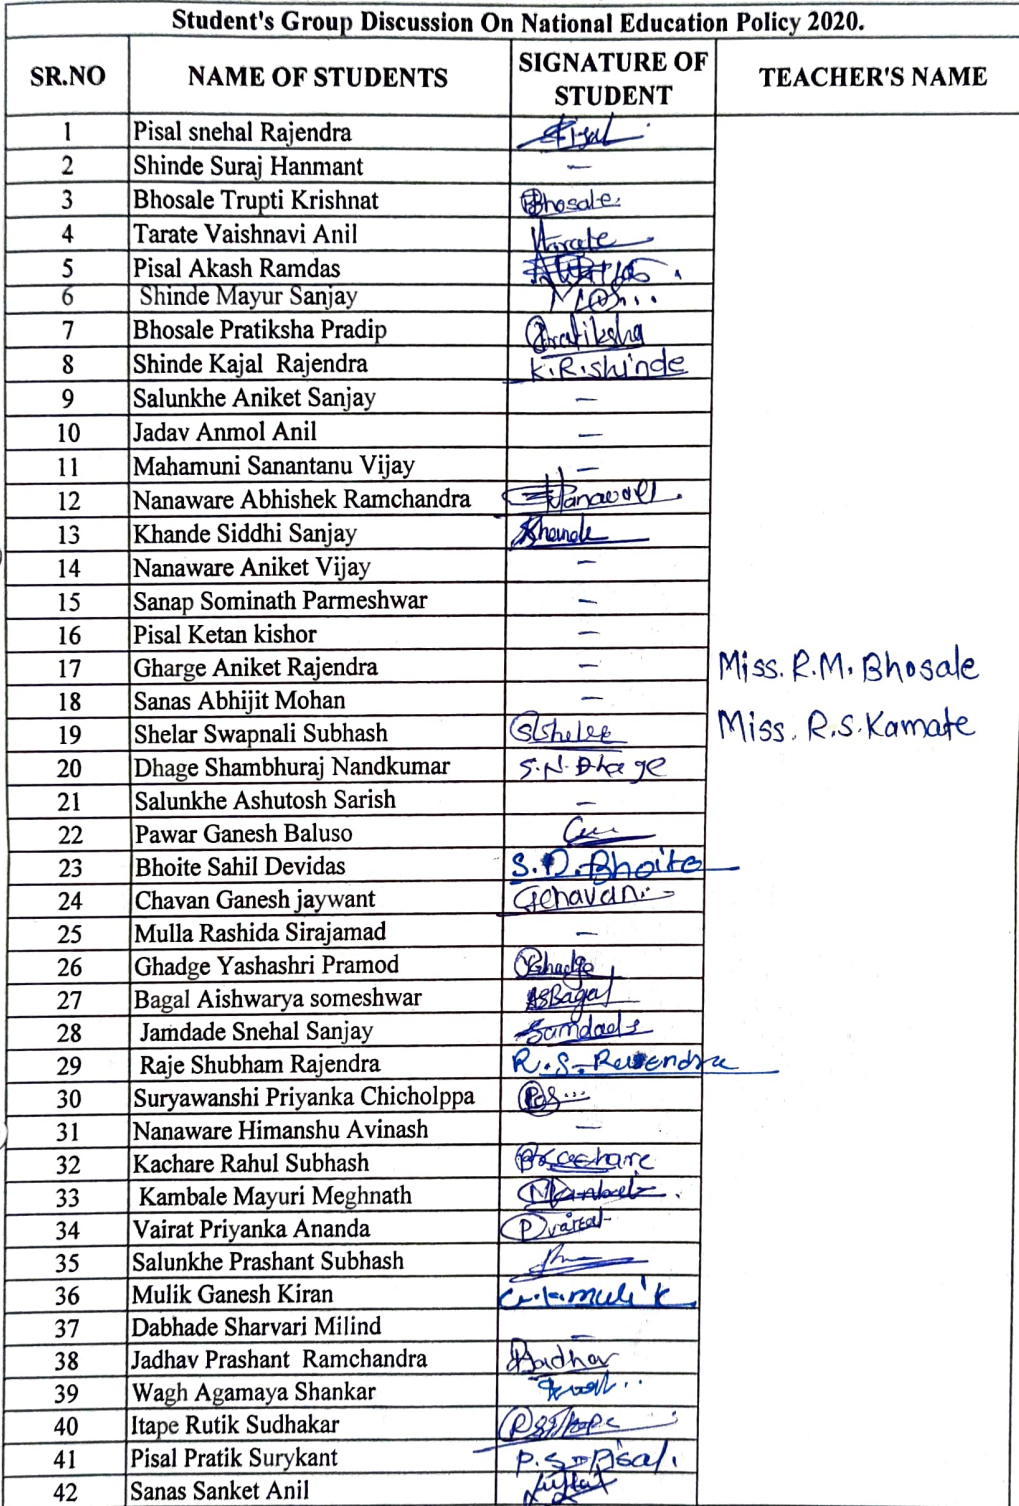 Student's Group Discussion On National Education Policy 2020.
SR.NO NAME OF STUDENTS SIGNATURE OF STUDENT TEACHER'S NAME
1 Pisal snehal Rajendra
2 Shinde Suraj Hanmant —
3 Bhosale Trupti Krishnat Bhosale.
4 Tarate Vaishnavi Anil
5 Pisal Akash Ramdas
6 Shinde Mayur Sanjay
7 Bhosale Pratiksha Pradip Pratiksha
8 Shinde Kajal Rajendra K.R.Shinde
9 Salunkhe Aniket Sanjay —
10 Jadav Anmol Anil —
11 Mahamuni Sanantanu Vijay —
12 Nanaware Abhishek Ramchandra
13 Khande Siddhi Sanjay Khande
14 Nanaware Aniket Vijay —
15 Sanap Sominath Parmeshwar —
16 Pisal Ketan kishor —
17 Gharge Aniket Rajendra — Miss. R.M. Bhosale
18 Sanas Abhijit Mohan —
19 Shelar Swapnali Subhash Miss. R.S. Kamate
20 Dhage Shambhuraj Nandkumar S.N.Dhage
21 Salunkhe Ashutosh Sarish —
22 Pawar Ganesh Baluso
23 Bhoite Sahil Devidas S.D.Bhoite
24 Chavan Ganesh jaywant Gchavan
25 Mulla Rashida Sirajamad —
26 Ghadge Yashashri Pramod Ghadge
27 Bagal Aishwarya someshwar ASBagal
28 Jamdade Snehal Sanjay
29 Raje Shubham Rajendra R.S.
30 Suryawanshi Priyanka Chicholppa
31 Nanaware Himanshu Avinash —
32 Kachare Rahul Subhash
33 Kambale Mayuri Meghnath
34 Vairat Priyanka Ananda Pvairat
35 Salunkhe Prashant Subhash
36 Mulik Ganesh Kiran G.K.mulik
37 Dabhade Sharvari Milind —
38 Jadhav Prashant Ramchandra
39 Wagh Agamaya Shankar
40 Itape Rutik Sudhakar
41 Pisal Pratik Surykant P.S.Pisal.
42 Sanas Sanket Anil